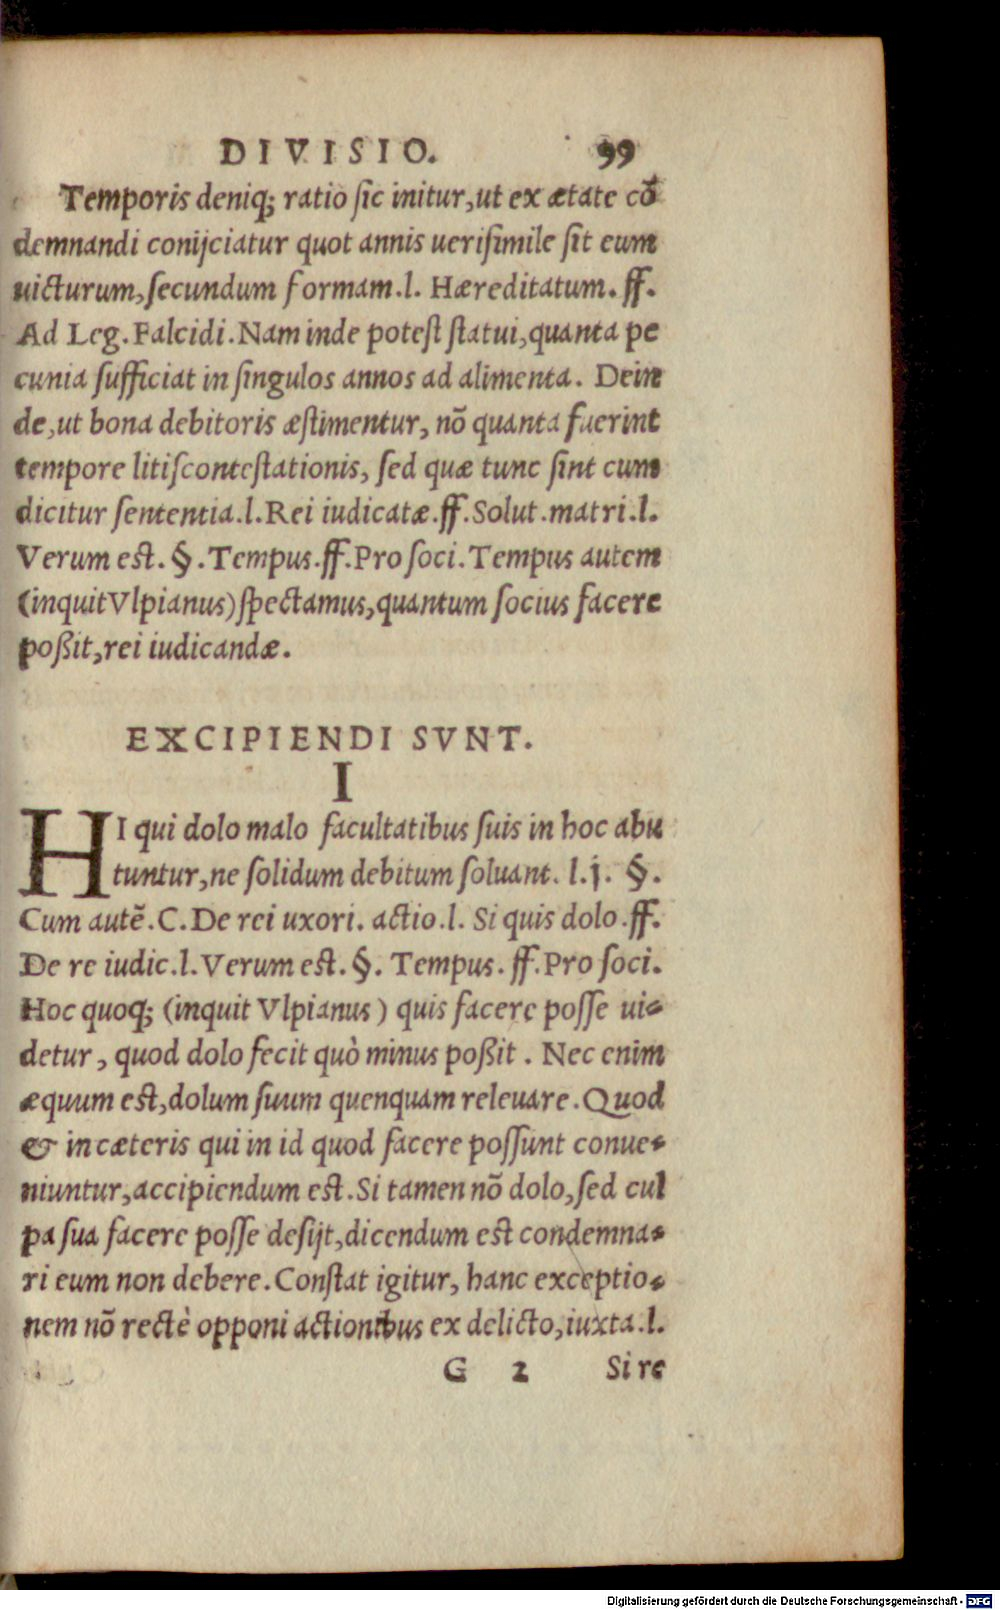 DIVISIO. 99
Temporis deniq; ratio sic initur, ut ex ætate cõ
demnandi conijciatur quot annis uerisimile sit eum
uicturum, secundum formam.l. Hæreditatum. ff.
Ad Leg. Falcidi. Nam inde potest statui, quanta pe
cunia sufficiat in singulos annos ad alimenta. Dein
de, ut bona debitoris æstimentur, nõ quanta fuerint
tempore litiscontestationis, sed quæ tunc sint cum
dicitur sententia.l. Rei iudicatæ. ff. Solut. matri.l.
Verum est. §. Tempus. ff. Pro soci. Tempus autem
(inquit Vlpianus) spectamus, quantum socius facere
poßit, rei iudicandæ.
EXCIPIENDI SVNT.
I
HI qui dolo malo facultatibus suis in hoc abu
tuntur, ne solidum debitum soluant. l.j. §.
Cum autẽ. C. De rei uxori. actio.l. Si quis dolo. ff.
De re iudic.l. Verum est. §. Tempus. ff. Pro soci.
Hoc quoq; (inquit Vlpianus) quis facere posse ui-
detur, quod dolo fecit quò minus poßit. Nec enim
æquum est, dolum suum quenquam releuare. Quod
& in cæteris qui in id quod facere possunt conue-
niuntur, accipiendum est. Si tamen nõ dolo, sed cul
pa sua facere posse desijt, dicendum est condemna-
ri eum non debere. Constat igitur, hanc exceptio-
nem nõ rectè opponi actionibus ex delicto, iuxta.l.
G 2 Si re
Digitalisierung gefördert durch die Deutsche Forschungsgemeinschaft - DFG